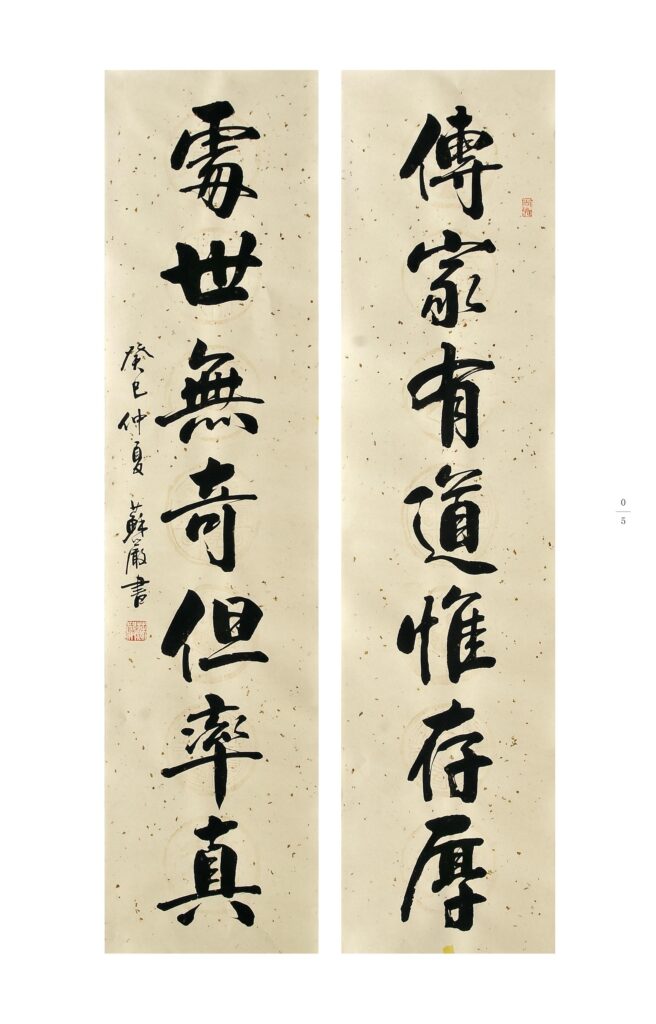 傳家有道惟存厚
處世無奇但率真
癸巳仲夏 蘇嚴書
0
5